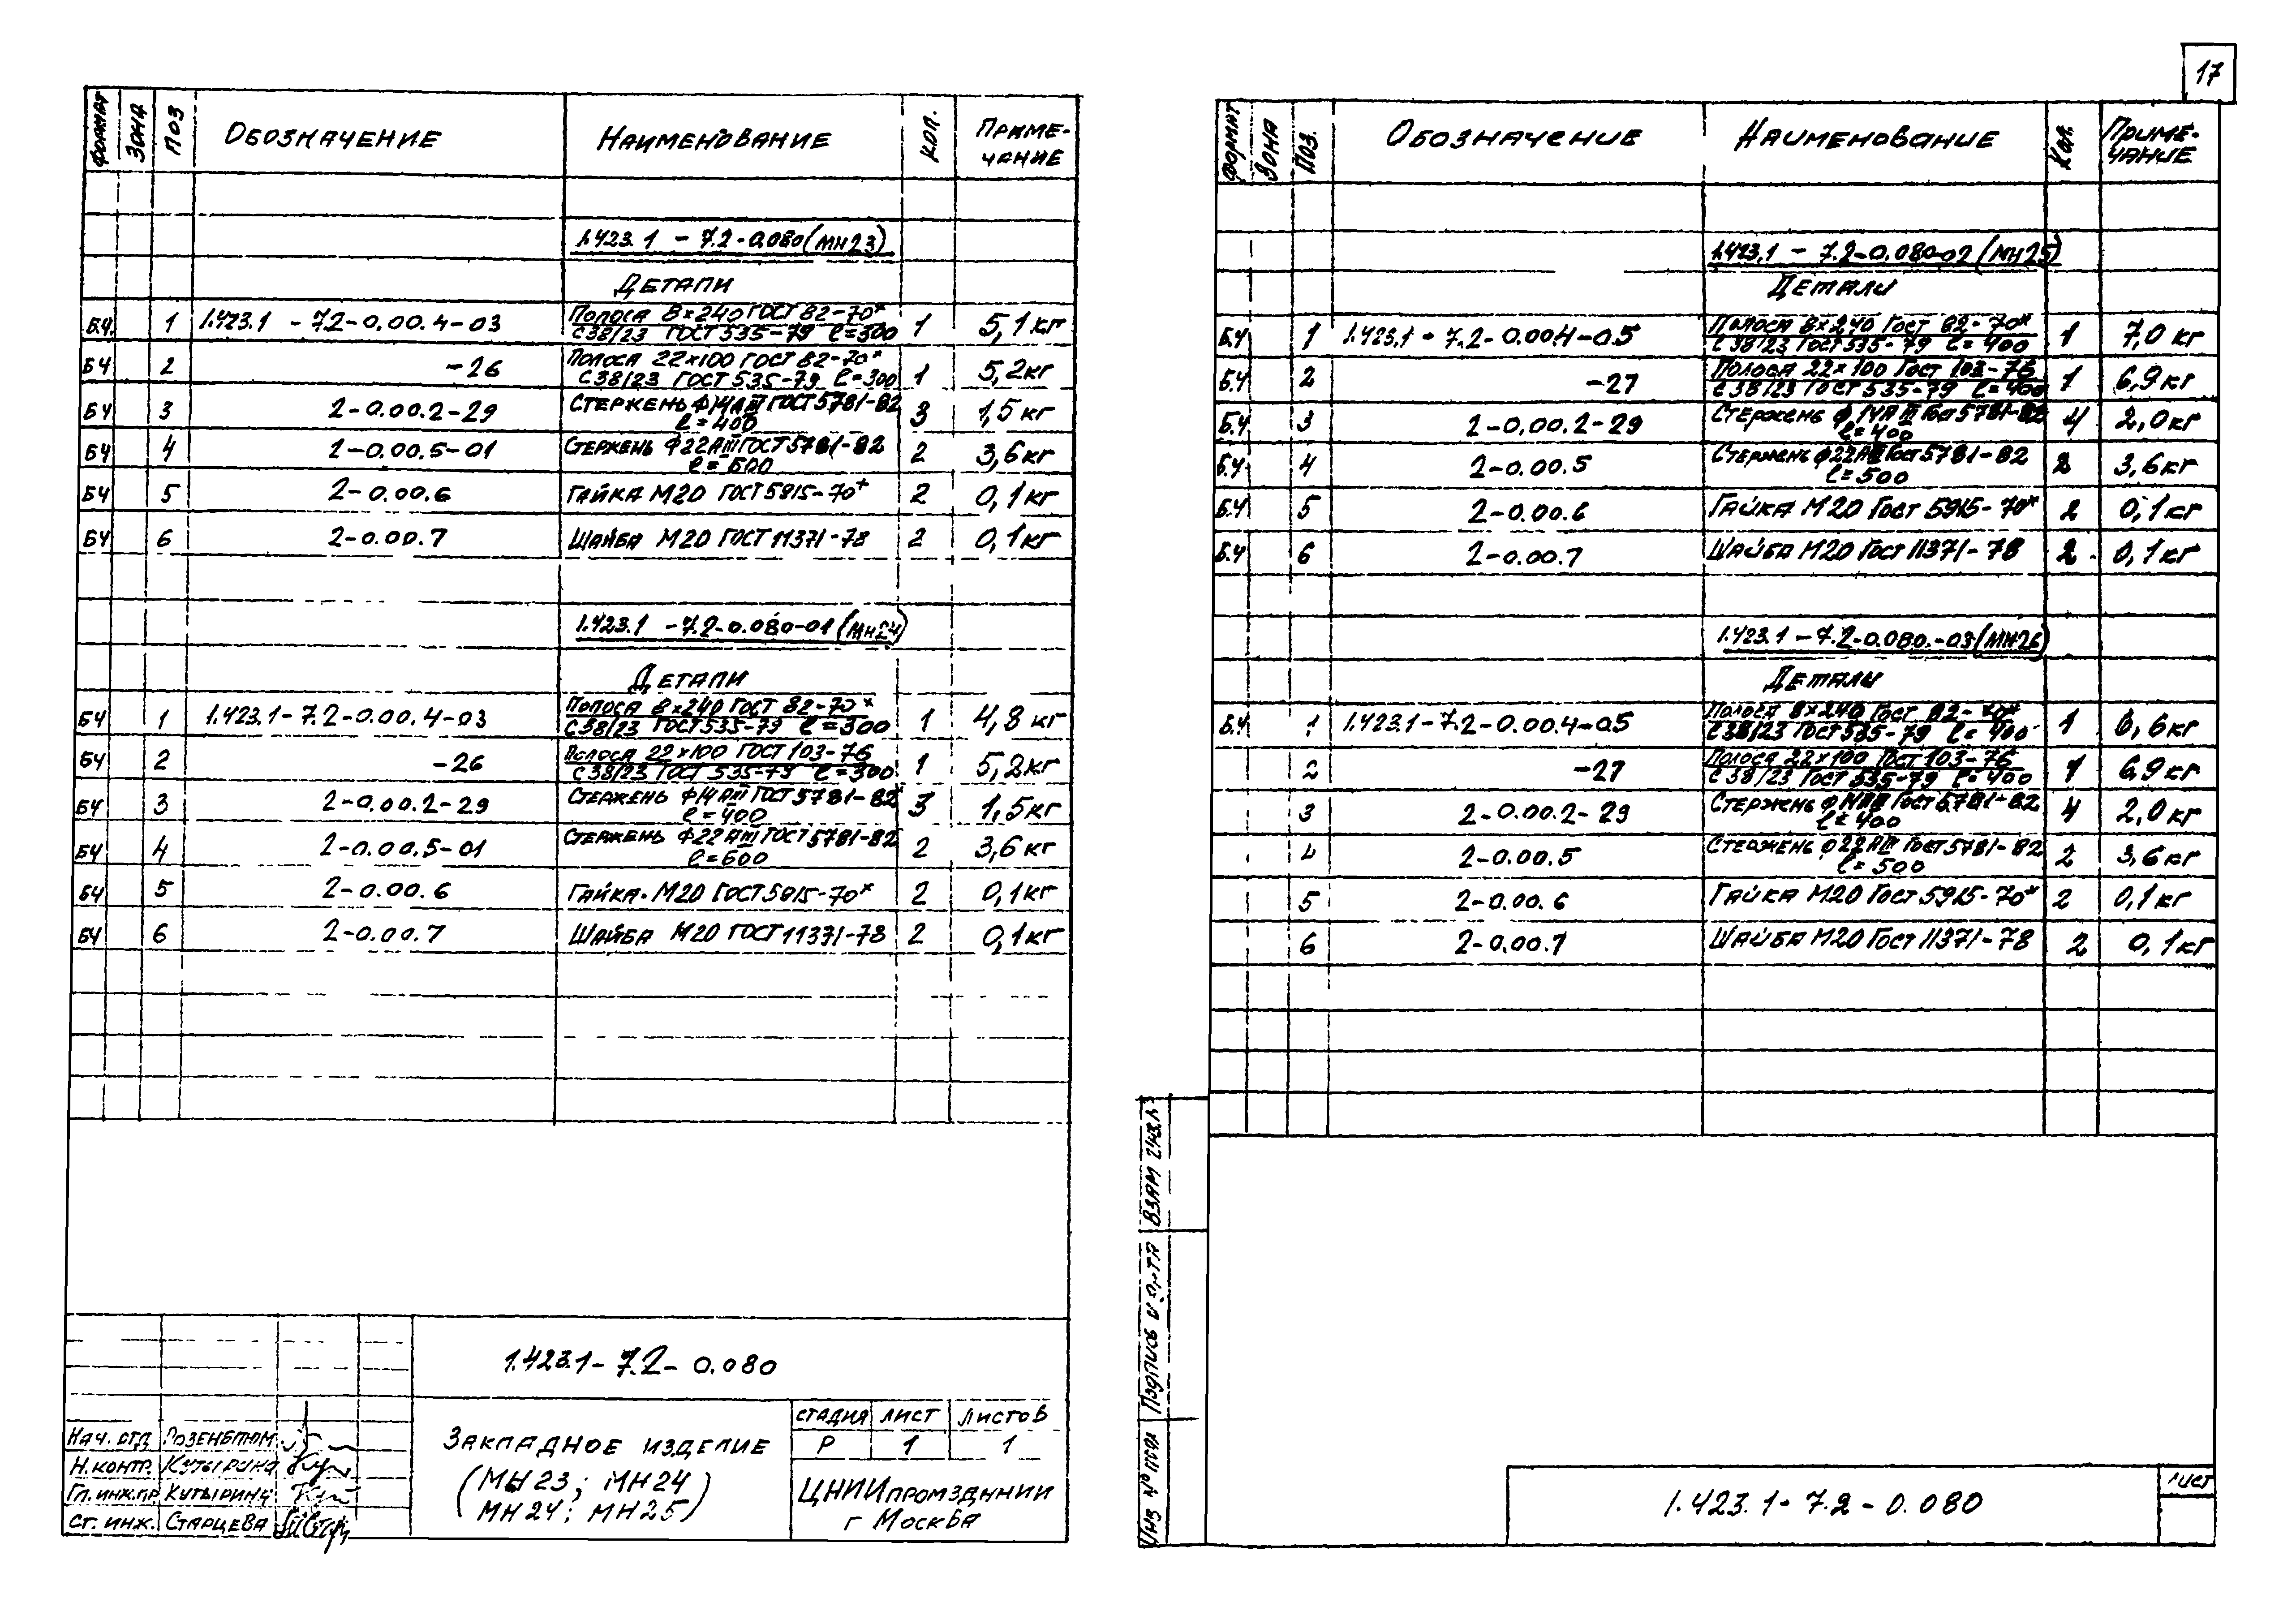 17
Формат Зона Поз Обозначение Наименование Кол. Приме-
чание
1.423.1 - 7.2-0.080 (МН23)
Детали
БЧ. 1 1.423.1 - 7.2-0.00.4-03 Полоса 8×240 ГОСТ 82-70* 1 5,1кг
С38/23 ГОСТ 535-79 ℓ=300
БЧ 2 -26 Полоса 22×100 ГОСТ 82-70* 1 5,2кг
С38/23 ГОСТ 535-79 ℓ=300
БЧ 3 2-0.00.2-29 Стержень Ф14АIII ГОСТ 5781-82 3 1,5кг
ℓ=400
БЧ 4 2-0.00.5-01 Стержень Ф22АIII ГОСТ 5781-82 2 3,6кг
ℓ=600
БЧ 5 2-0.00.6 Гайка М20 ГОСТ 5915-70* 2 0,1кг
БЧ 6 2-0.00.7 Шайба М20 ГОСТ 11371-78 2 0,1кг
1.423.1 -7.2-0.080-01 (МН24)
Детали
БЧ 1 1.423.1-7.2-0.00.4-03 Полоса 8×240 ГОСТ 82-70* 1 4,8кг
С38/23 ГОСТ 535-79 ℓ=300
БЧ 2 -26 Полоса 22×100 ГОСТ 103-76 1 5,2кг
С38/23 ГОСТ 535-79 ℓ=300
БЧ 3 2-0.00.2-29 Стержень Ф14АIII ГОСТ 5781-82 3 1,5кг
ℓ=400
БЧ 4 2-0.00.5-01 Стержень Ф22АIII ГОСТ 5781-82 2 3,6кг
ℓ=600
БЧ 5 2-0.00.6 Гайка М20 ГОСТ 5915-70* 2 0,1кг
БЧ 6 2-0.00.7 Шайба М20 ГОСТ 11371-78 2 0,1кг
1.423.1-7.2-0.080
Нач. отд Розенблюм
Н.контр. Кутырина
Гл.инж.пр Кутырина
Ст. инж. Старцева
Закладное изделие
(МН23; МН24
МН24; МН25)
Стадия Лист Листов
Р 1 1
ЦНИИпромзданий
г Москва
Формат Зона Поз. Обозначение Наименование Кол. Приме-
чание
1.423.1 - 7.2-0.080-02 (МН25)
Детали
БЧ 1 1.423.1-7.2-0.00.4-05 Полоса 8×240 ГОСТ 82-70* 1 7,0кг
С38/23 ГОСТ 535-79 ℓ=400
БЧ 2 -27 Полоса 22×100 ГОСТ 103-76 1 6,9кг
С38/23 ГОСТ 535-79 ℓ=400
БЧ 3 2-0.00.2-29 Стержень ф14АIII ГОСТ 5781-82 4 2,0кг
ℓ=400
БЧ 4 2-0.00.5 Стержень ф22АIII ГОСТ 5781-82 2 3,6кг
ℓ=500
БЧ 5 2-0.00.6 Гайка М20 ГОСТ 5915-70* 2 0,1кг
БЧ 6 2-0.00.7 Шайба М20 ГОСТ 11371-78 2 0,1кг
1.423.1-7.2-0.080.-03 (МН26)
Детали
БЧ 1 1.423.1-7.2-0.00.4-05 Полоса 8×240 ГОСТ 82-70* 1 6,6кг
С38/23 ГОСТ 535-79 ℓ=400
2 -27 Полоса 22×100 ГОСТ 103-76 1 6,9кг
С38/23 ГОСТ 535-79 ℓ=400
3 2-0.00.2-29 Стержень ф14АIII ГОСТ 5781-82 4 2,0кг
ℓ=400
4 2-0.00.5 Стержень ф22АIII ГОСТ 5781-82 2 3,6кг
ℓ=500
5 2-0.00.6 Гайка М20 ГОСТ 5915-70* 2 0,1кг
6 2-0.00.7 Шайба М20 ГОСТ 11371-78 2 0,1кг
Инв № подл Подпись и дата Взам инв.№
1.423.1-7.2-0.080
Лист